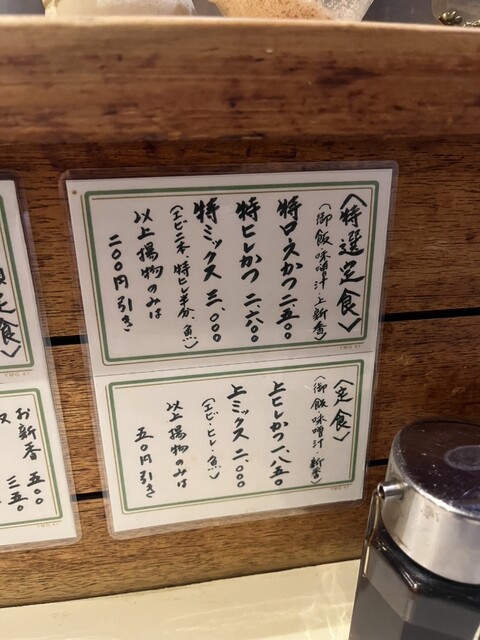 〈特選定食〉
(御飯・味噌汁・上新香)
特ロースかつ 二.五〇〇
特ヒレかつ 二.六〇〇
特ミックス 三.〇〇〇
(エビ二本・特ヒレ半分、魚)
以上揚物のみは
二〇〇円引き
〈定食〉
(御飯・味噌汁・新香)
上ヒレかつ 一.八五〇
上ミックス 二.〇〇〇
(エビ・ヒレ・魚)
以上揚物のみは
五〇円引き
定食〉
お新香 五〇〇
三五〇